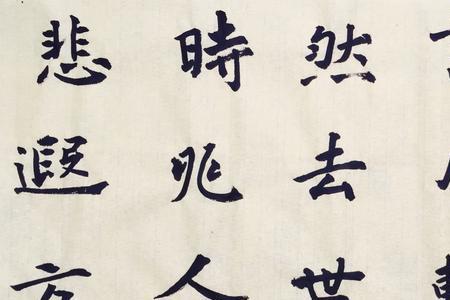 然去世
時兆人
悲遐方